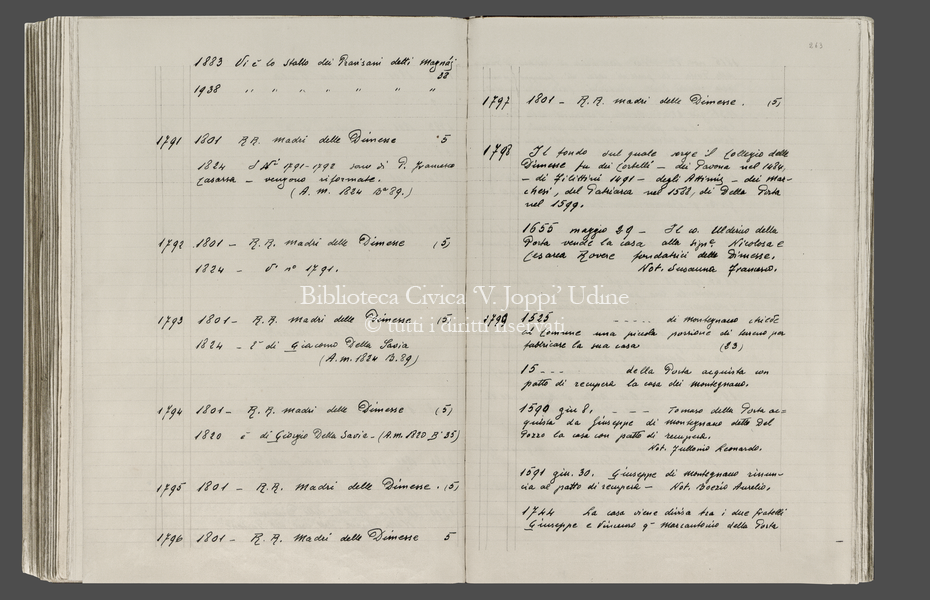 1883 Vi è lo stallo dei Travisani detti Magnàs
38
1938 " " " " " " "
1791 1801 RR. madri delle Dimesse 5
1824 I Ni 1791-1792 sono di P. Francesco
Casarsa – vengono riformate.
(A. m. 1824 Ba 89.)
1792 1801 – R. R. madri delle Dimesse (5)
1824 – Vo no 1791.
1793 1801 – R. R. madri delle Dimesse (5)
1824 – È di Giacomo Della Savia
(A. m. 1824 B. 89)
1794 1801 – R. R. madri delle Dimesse (5)
1820 è di Giorgio Della Savia – (A. m. 1820 B. 35)
1795 1801 – R. R. Madri delle Dimesse. (5)
1796 1801 – R. R. Madri delle Dimesse 5
263
1797 1801 – R. R. madri delle Dimesse. (5)
1798 Il fondo sul quale sorge il Collegio delle
Dimesse fu dei Cortelli – dei Pavona nel 1484.
– di Filittini 1491 – degli Attimis – dei Mar-
chesi, del Patriarca nel 1588, di Della Porta
nel 1599.
1655 maggio 29 – Il co. Ulderico della
Porta vende la casa alla sigre Nicolosa e
Cesarea Rovere fondatrici delle Dimesse.
Not. Susanna Francesco.
1799 1525 ----- di Montegnano chiede
al Comune una piccola porzione di terreno per
fabbricare la sua casa (23)
15 --- della Porta acquista con
patto di recupera la casa dei Montegnano.
1590 giu 8, – – – Tomaso della Porta ac-
quista da Giuseppe di Montegnano detto Del
Pozzo la casa con patto di recupera.
Not. Jullonio Leonardo.
1591 giu. 30. Giuseppe di Montegnano rinun-
cia al patto di recupera – Not. Boezio Aurelio.
1744 La casa viene divisa tra i due fratelli
Giuseppe e Vincenzo qm Marcantonio della Porta
Biblioteca Civica 'V. Joppi' Udine
© tutti i diritti riservati